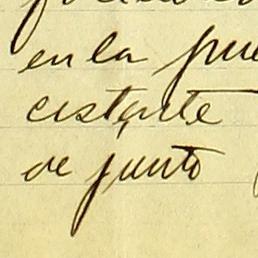 en la pue
cistante
de junto